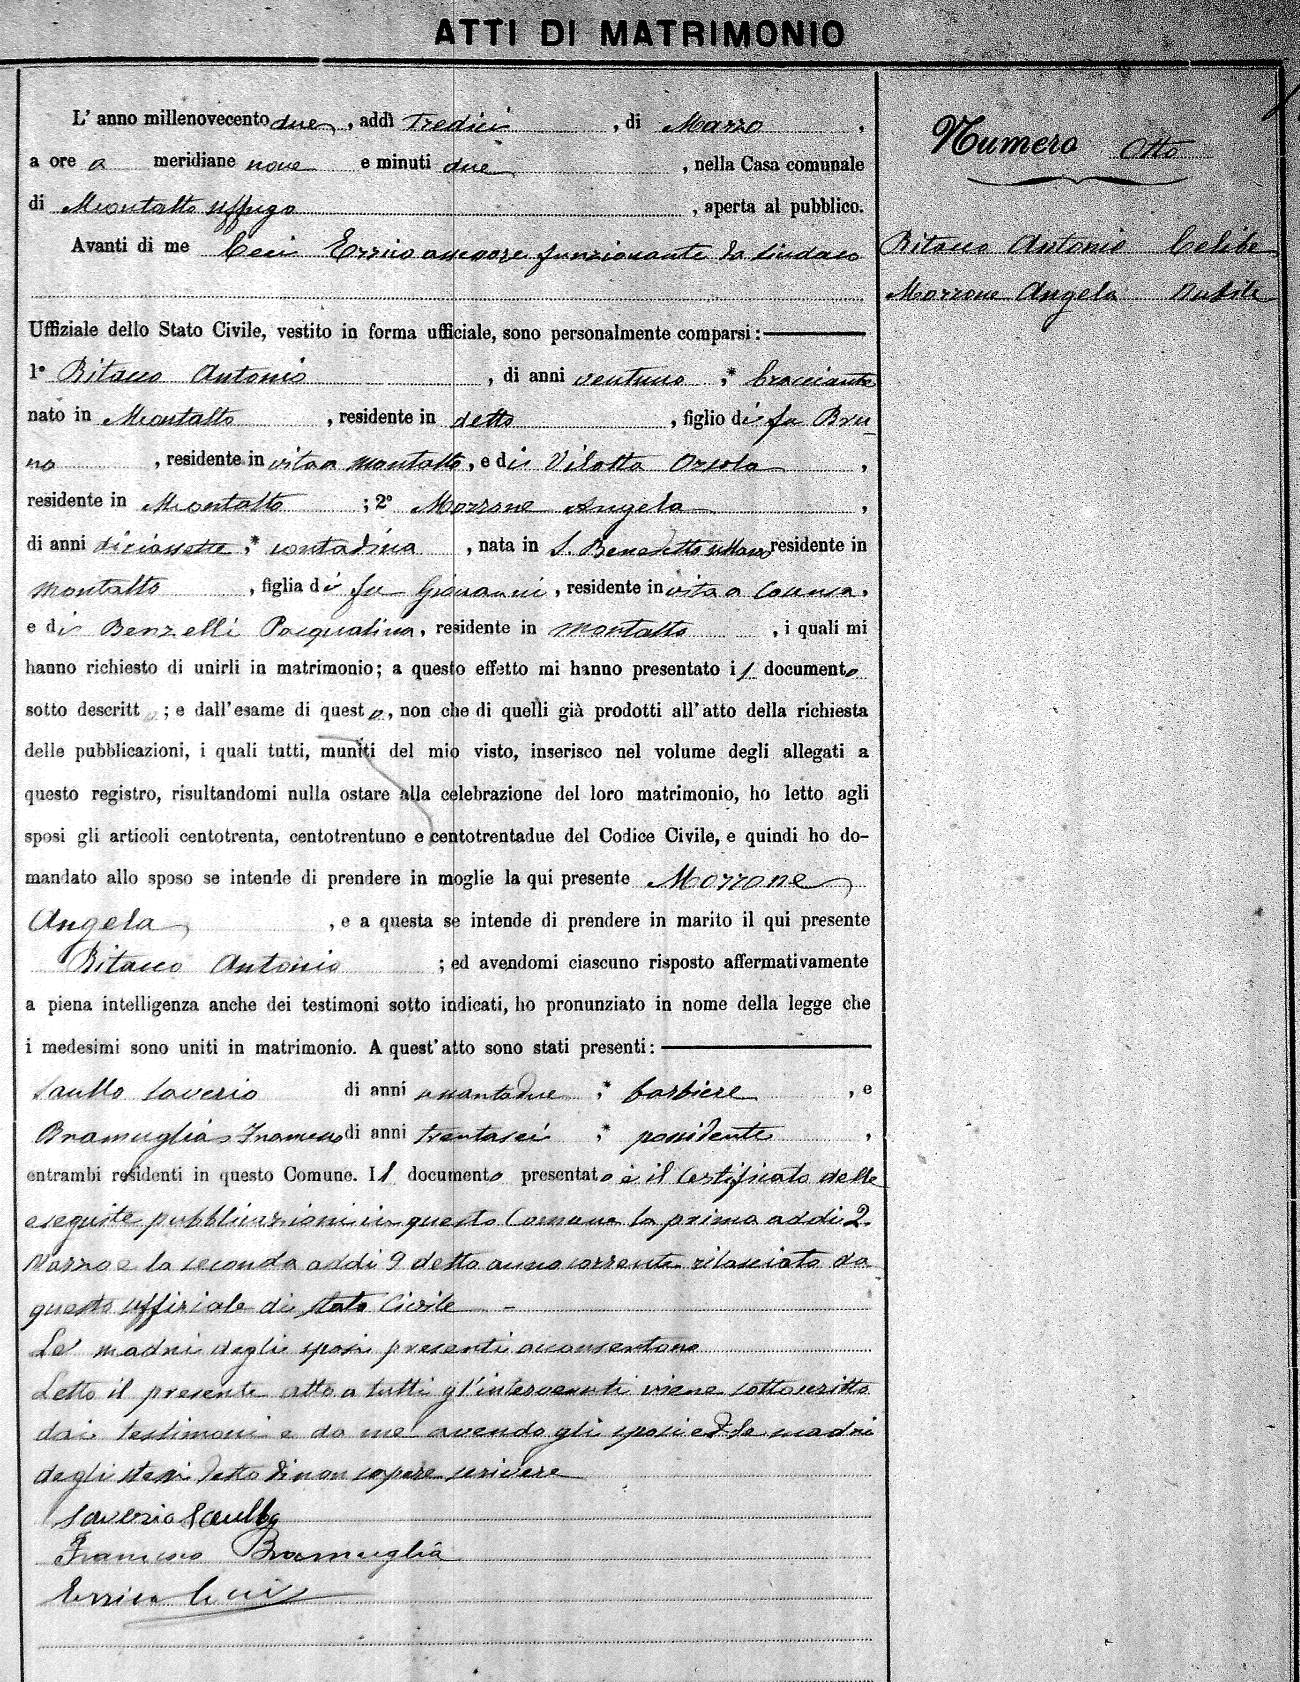 ATTI DI MATRIMONIO
L' anno millenovecento due, addì Tredici, di Marzo,
a ore a meridiane nove e minuti due, nella Casa comunale
di Montalto Uffugo, aperta al pubblico.
Avanti di me Ceci Errico assessore funzionante da sindaco
Numero Otto
Ritacco Antonio Celibe
Morrone Angela Nubile
Uffiziale dello Stato Civile, vestito in forma ufficiale, sono personalmente comparsi:
1° Ritacco Antonio, di anni ventuno,* bracciante
nato in Montalto, residente in detto, figlio di fu Bru-
no, residente in vita a Montalto, e di Vilotta Orsola,
residente in Montalto; 2° Morrone Angela,
di anni diciassette,* contadina, nata in S. Benedetto Ullano residente in
Montalto, figlia di fu Giovanni, residente in vita a Cosenza,
e di Benzelli Pasqualina, residente in Montalto, i quali mi
hanno richiesto di unirli in matrimonio; a questo effetto mi hanno presentato il documento
sotto descritto; e dall'esame di questo, non che di quelli già prodotti all'atto della richiesta
delle pubblicazioni, i quali tutti, muniti del mio visto, inserisco nel volume degli allegati a
questo registro, risultandomi nulla ostare alla celebrazione del loro matrimonio, ho letto agli
sposi gli articoli centotrenta, centotrentuno e centotrentadue del Codice Civile, e quindi ho do-
mandato allo sposo se intende di prendere in moglie la qui presente Morrone
Angela, e a questa se intende di prendere in marito il qui presente
Ritacco Antonio; ed avendomi ciascuno risposto affermativamente
a piena intelligenza anche dei testimoni sotto indicati, ho pronunziato in nome della legge che
i medesimi sono uniti in matrimonio. A quest'atto sono stati presenti:
Saullo Saverio di anni quarantadue,* barbiere, e
Bramuglia Francesco di anni trentasei,* possidente,
entrambi residenti in questo Comune. Il documento presentato è il certificato delle
eseguite pubblicazioni in questo Comune la prima addi 2
Marzo e la seconda addi 9 detto anno corrente rilasciato da
questo uffiziale di stato Civile
Le madri degli sposi presenti acconsentono
Letto il presente atto a tutti gl'intervenuti viene sottoscritto
dai testimoni e da me avendo gli sposi ed le madri
degli stessi detto di non sapere scrivere
Saverio Saullo
Francesco Bramuglia
Errico Ceci